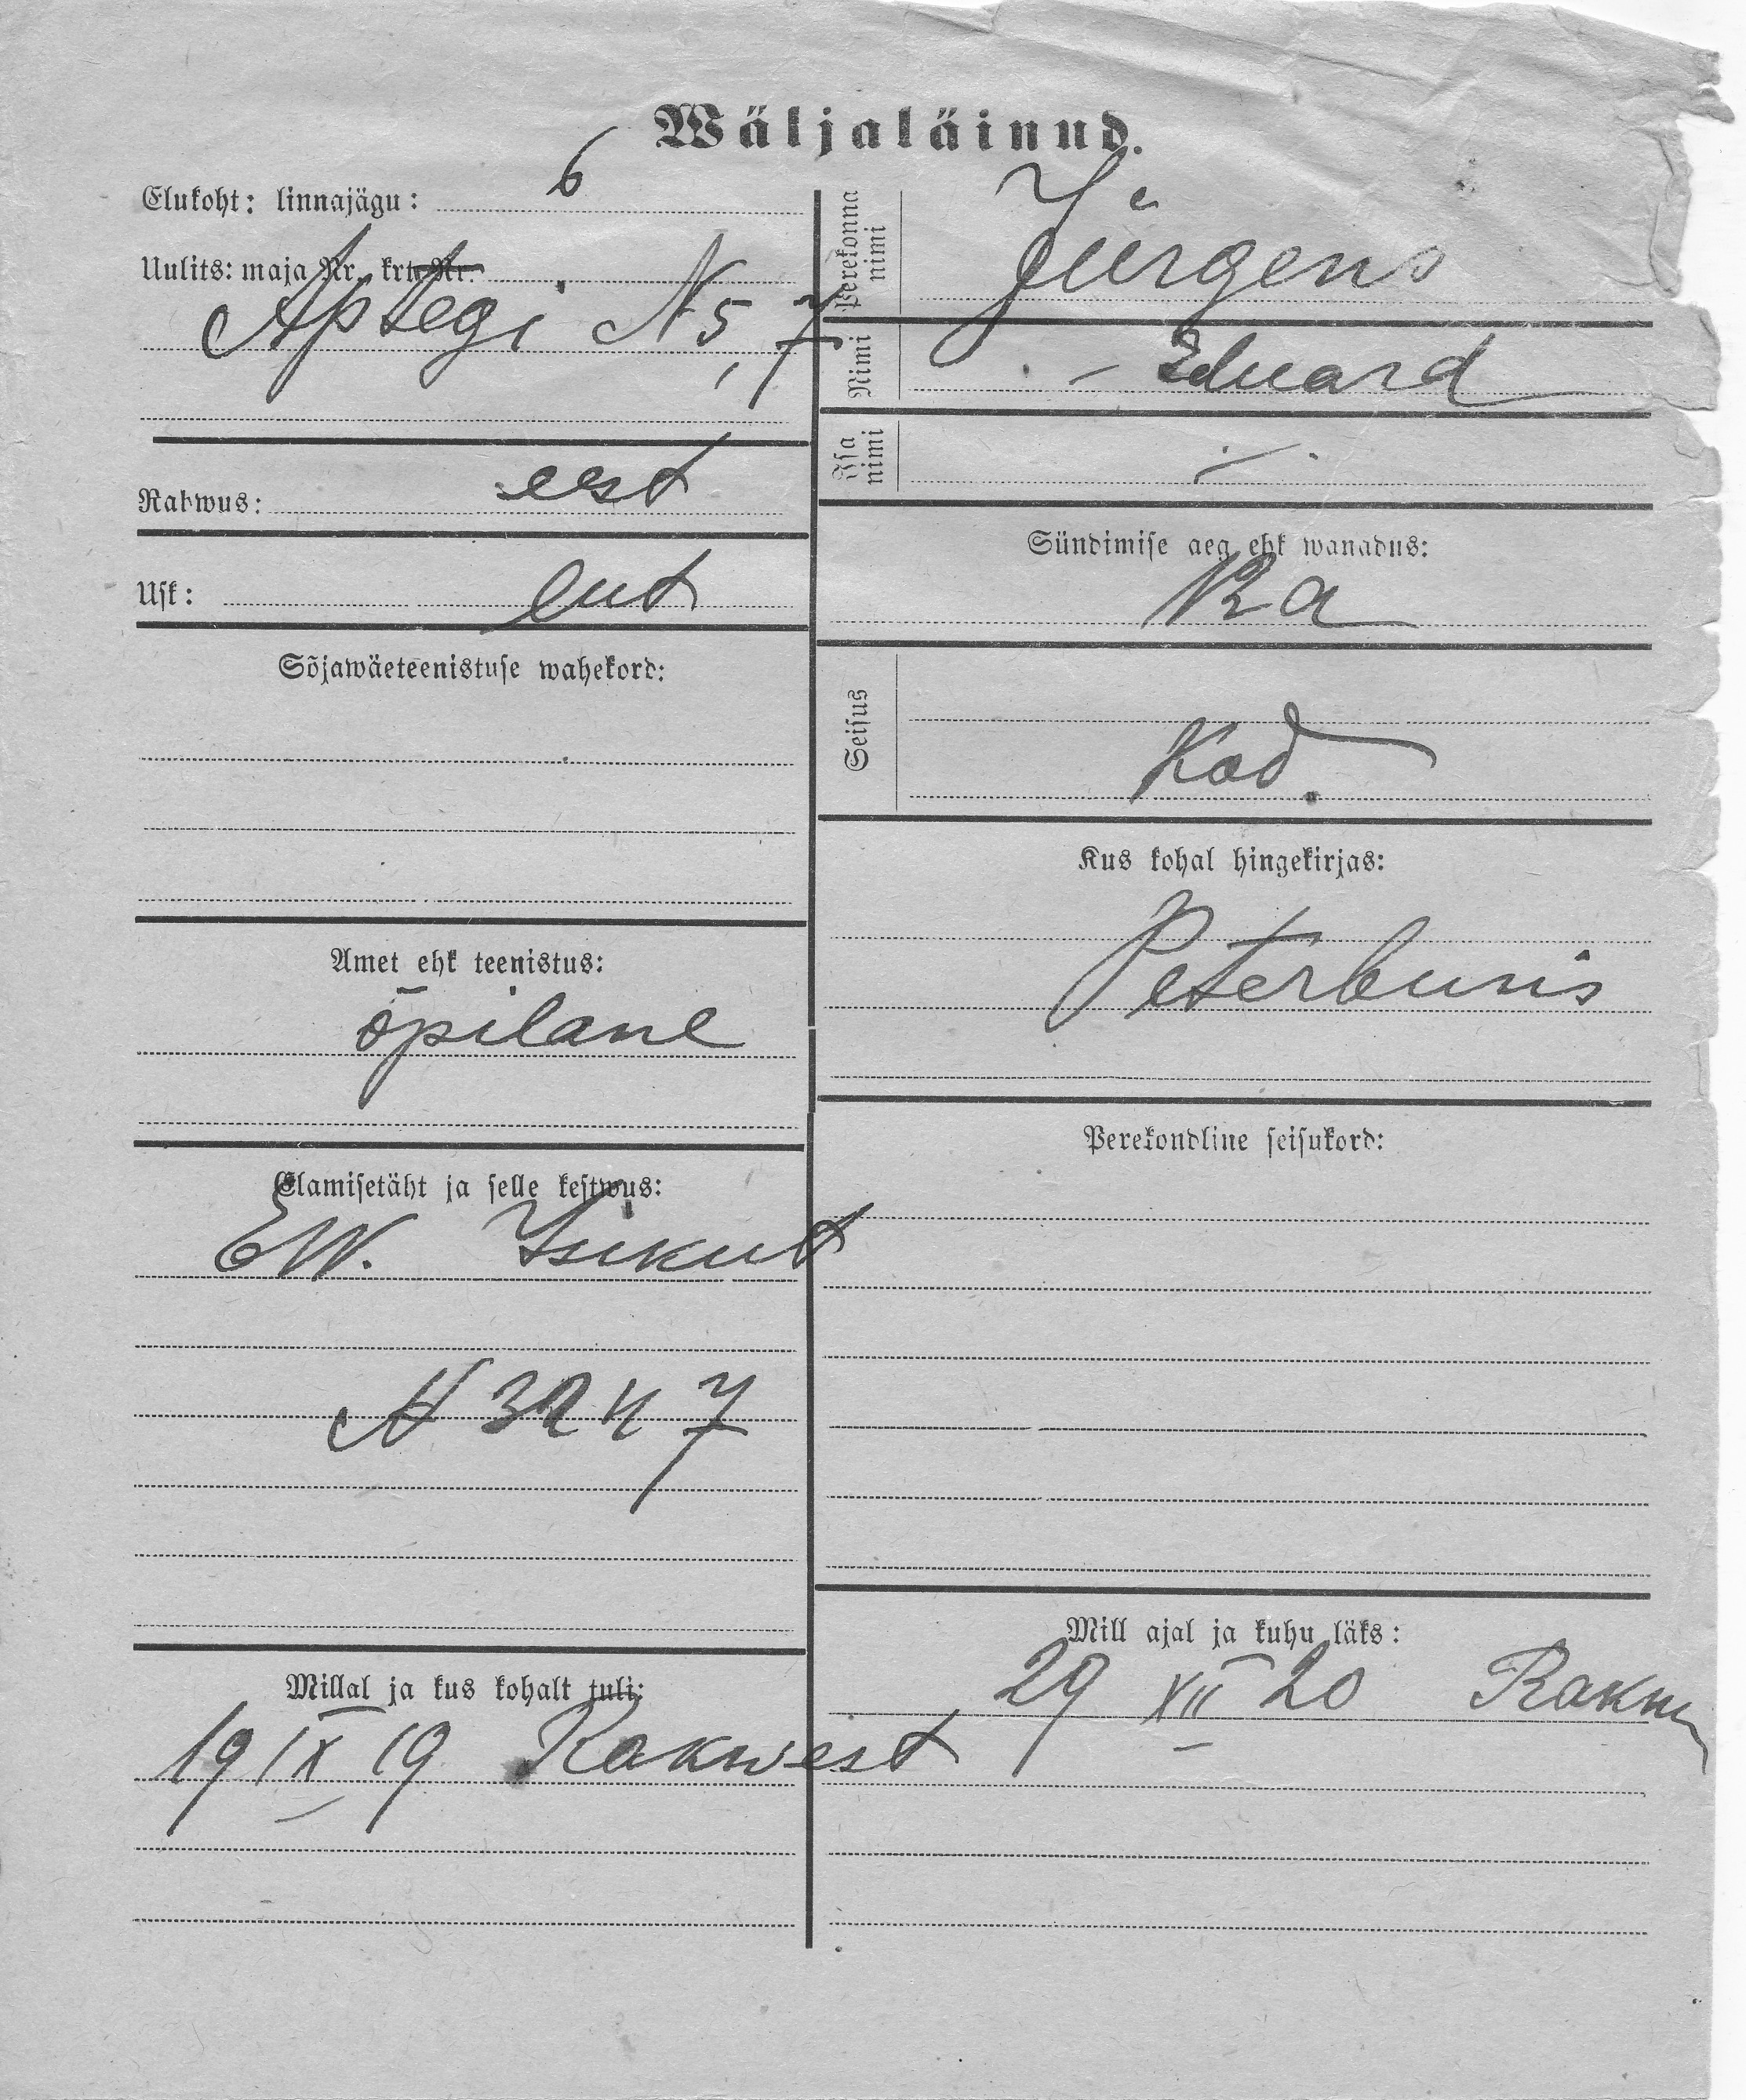 Wäljaläinud.
Elukoht: linnajägu: 6
Uulits: maja Nr. krt. Nr.
Aptegi N 5, 7
Rahwus: eest
Usk: lut
Sõjawäeteenistuse wahekord:
Amet ehk teenistus:
õpilane
Elamisetäht ja selle kestwus:
EW. Isikut
N 3247
Millal ja kus kohalt tuli:
19 IX 19 Rakwest
Perekonna nimi
Jürgens
Nimi
Eduard
Isa nimi
Sündimise aeg ehk wanadus:
12 a
Seisus
Kod.
Kus kohal hingekirjas:
Peterburis
Perekondline seisukord:
Mill ajal ja kuhu läks:
29 XII 20 Rakw